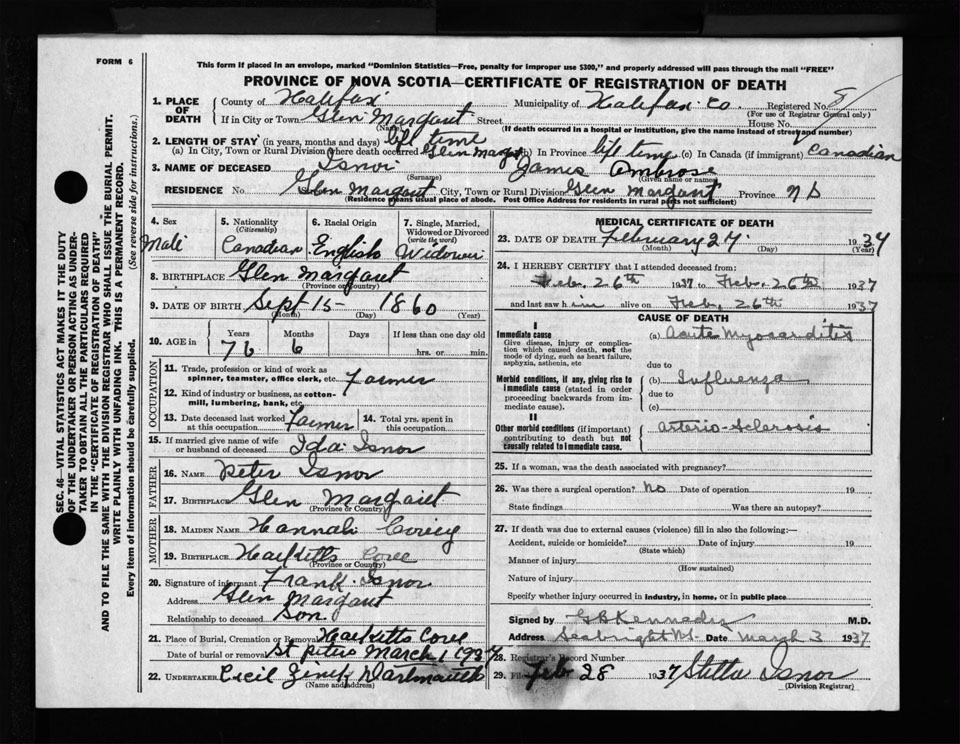 FORM 6
This form if placed in an envelope, marked "Dominion Statistics—Free, penalty for improper use $300," and properly addressed will pass through the mail "FREE"
PROVINCE OF NOVA SCOTIA—CERTIFICATE OF REGISTRATION OF DEATH
1. PLACE OF DEATH County of Halifax Municipality of Halifax Co. Registered No.
(For use of Registrar General only)
If in City or Town Glen Margaut Street House No.
(Name) (If death occurred in a hospital or institution, give the name instead of street and number)
2. LENGTH OF STAY (in years, months and days) life time
(a) In City, Town or Rural Division where death occurred Glen Margt (b) In Province life time (c) In Canada (if immigrant) Canadian
3. NAME OF DECEASED Isnor James Ambrose
(Surname) (Given name or names)
RESIDENCE No. Glen Margaut City, Town or Rural Division Glen Margaut Province N S
(Residence means usual place of abode. Post Office Address for residents in rural parts not sufficient)
4. Sex Male
5. Nationality (Citizenship) Canadian
6. Racial Origin English
7. Single, Married, Widowed or Divorced (write the word) Widower
8. BIRTHPLACE Glen Margaut
(Province or Country)
9. DATE OF BIRTH Sept 15 1860
(Month) (Day) (Year)
10. AGE in Years Months Days If less than one day old
76 6 hrs. or min.
OCCUPATION
11. Trade, profession or kind of work as spinner, teamster, office clerk, etc. Farmer
12. Kind of industry or business, as cotton-mill, lumbering, bank, etc.
13. Date deceased last worked at this occupation Farmer 14. Total yrs. spent in this occupation
15. If married give name of wife or husband of deceased Ida Isnor
FATHER
16. NAME Peter Isnor
17. BIRTHPLACE Glen Margaut
(Province or Country)
MOTHER
18. MAIDEN NAME Hannah
19. BIRTHPLACE Hacketts Cove
(Province or Country)
20. Signature of informant Frank Isnor
Address Glen Margaut
Relationship to deceased Son
21. Place of Burial, Cremation or Removal Hacketts Cove
Date of burial or removal St peters March 1 1937
22. UNDERTAKER Cecil Zink Dartmouth
(Name and address)
MEDICAL CERTIFICATE OF DEATH
23. DATE OF DEATH February 27 1934
(Month) (Day) (Year)
24. I HEREBY CERTIFY that I attended deceased from:
Feb. 26th 1937 to Feb. 26th 1937
and last saw him alive on Feb. 26th 1937
CAUSE OF DEATH
I
Immediate cause
Give disease, injury or complication which caused death, not the mode of dying, such as heart failure, asphyxia, asthenia, etc
(a) Acute Myocarditis
due to
Morbid conditions, if any, giving rise to immediate cause (stated in order proceeding backwards from immediate cause).
(b) Influenza
due to
(c)
II
Other morbid conditions (if important) contributing to death but not causally related to immediate cause.
Arterio-Sclerosis
25. If a woman, was the death associated with pregnancy?
26. Was there a surgical operation? No Date of operation 19
State findings Was there an autopsy?
27. If death was due to external causes (violence) fill in also the following:—
Accident, suicide or homicide? Date of injury 19
(State which)
Manner of injury
(How sustained)
Nature of injury
Specify whether injury occurred in industry, in home, or in public place
Signed by G B Kennedy M.D.
Address Seabright N.S. Date March 3 1937
28. Registrar's Record Number
29. Filed Feb 28 1937 Stella Isnor
(Division Registrar)
SEC. 46—VITAL STATISTICS ACT MAKES IT THE DUTY
OF THE UNDERTAKER OR PERSON ACTING AS UNDERTAKER
TO OBTAIN ALL THE PARTICULARS REQUIRED
IN THE "CERTIFICATE OF REGISTRATION OF DEATH"
AND TO FILE THE SAME WITH THE DIVISION REGISTRAR WHO SHALL ISSUE THE BURIAL PERMIT.
WRITE PLAINLY WITH UNFADING INK. THIS IS A PERMANENT RECORD.
Every item of information should be carefully supplied. (See reverse side for instructions.)